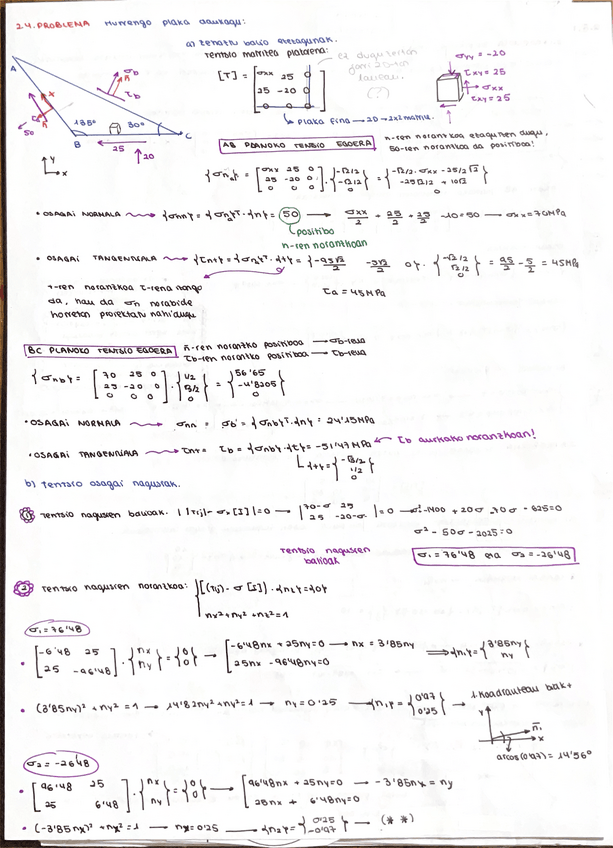 2.4. PROBLEMA Hurrengo plaka daukagu:
a) Tentsio balio ezezagunak.
Tentsio matrizea planoena:
[T] = [σxx 25 0
25 -20 0
0 0 0]
(?)
↳ Plaka fina → 2D → 2x2 matriz.
σyy = -20
τxy = 25
σxx
τxy = 25
A
B
C
135º
30º
σb
n
τb
50
25
20
y
x
AB PLANOKO TENTSIO EGOERA
n-ren norantzkoa ezagutzen dugu,
50-ren norantzkoa da positiboa!
{σna} = [σxx 25 0
25 -20 0
0 0 0] · {-√2/2
-√2/2
0} = {-√2/2 · σxx - 25/2 √2
-25√2/2 + 10√2
0}
• OSAGAI NORMALA → {σnn} = {σna}ᵀ · {n} = 50 → σxx/2 + 25/2 + 25/2 - 10 = 50 → σxx = 70MPa
positibo
n-ren norantzkoan
• OSAGAI TANGENTZIALA → {τnt} = {σna}ᵀ · {t} = {-95√2/2 -5√2/2 0} · {-√2/2
√2/2
0} = 95/2 - 5/2 = 45MPa
t-ren norantzkoa τ-rena izango
da, hau da σn norabide
horretan proiektatu nahi dugu
τa = 45MPa
BC PLANOKO TENTSIO EGOERA
n-ren norantzko positiboa → σb-rena
τb-ren norantzko positiboa → τb-rena
{σnb} = [70 25 0
25 -20 0
0 0 0] · {1/2
√3/2
0} = {56'65
-4'8205
0}
• OSAGAI NORMALA → σnn = σb = {σnb}ᵀ · {n} = 24'15MPa
• OSAGAI TANGENTZIALA → τnt = τb = {σnb} · {t} = -51'47 MPa ← τb aurkako norantzkoan!
↳ {t} = {-√3/2
1/2
0}
b) Tentsio osagai nagusiak.
1 Tentsio nagusien balioak: | [Tij] - σx [I] | = 0 → |70-σ 25
25 -20-σ| = 0 → σ² - 1400 + 20σ - 70σ - 625 = 0
σ² - 50σ - 2025 = 0
Tentsio nagusien
balioak
σ1 = 76'48 eta σ2 = -26'48
2 Tentsio nagusien norantzkoa: {[(Tij) - σ [I]] · {n} = {0}
nx² + ny² + nz² = 1
σ1 = 76'48
• [-6'48 25
25 -96'48] · {nx
ny} = {0
0} → [-6'48nx + 25ny = 0 → nx = 3'85ny
25nx - 96'48ny = 0
⟹ {n1} = {3'85ny
ny}
• (3'85ny)² + ny² = 1 → 14'82ny² + ny² = 1 → ny = 0'25 → {n1} = {0'97
0'25} →
1 Koadranteau
y
n1
x
arcos(0'97) = 14'56º
σ2 = -26'48
• [96'48 25
25 6'48] · {nx
ny} = {0
0} → [96'48nx + 25ny = 0 → -3'85nx = ny
25nx + 6'48ny = 0
• (-3'85nx)² + nx² = 1 → nx = 0'25 → {n2} = {0'25
-0'97} → (* *)